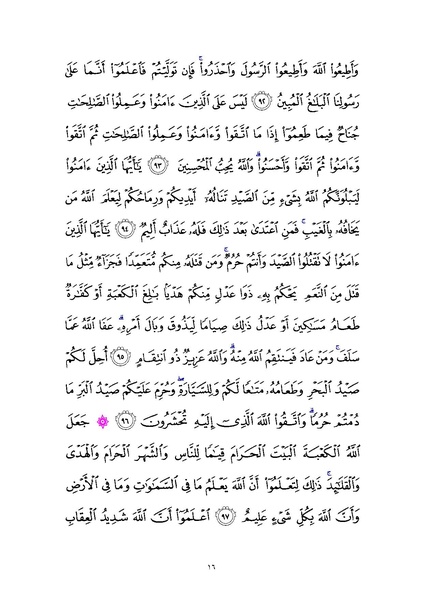 وَأَطِيعُوا۟ ٱللَّهَ وَأَطِيعُوا۟ ٱلرَّسُولَ وَٱحْذَرُوا۟ۚ فَإِن تَوَلَّيْتُمْ فَٱعْلَمُوٓا۟ أَنَّمَا عَلَىٰ
رَسُولِنَا ٱلْبَلَٰغُ ٱلْمُبِينُ ﴿٩٢﴾ لَيْسَ عَلَى ٱلَّذِينَ ءَامَنُوا۟ وَعَمِلُوا۟ ٱلصَّٰلِحَٰتِ
جُنَاحٌ فِيمَا طَعِمُوٓا۟ إِذَا مَا ٱتَّقَوا۟ وَّءَامَنُوا۟ وَعَمِلُوا۟ ٱلصَّٰلِحَٰتِ ثُمَّ ٱتَّقَوا۟
وَّءَامَنُوا۟ ثُمَّ ٱتَّقَوا۟ وَّأَحْسَنُوا۟ۗ وَٱللَّهُ يُحِبُّ ٱلْمُحْسِنِينَ ﴿٩٣﴾ يَٰٓأَيُّهَا ٱلَّذِينَ ءَامَنُوا۟
لَيَبْلُوَنَّكُمُ ٱللَّهُ بِشَىْءٍ مِّنَ ٱلصَّيْدِ تَنَالُهُۥٓ أَيْدِيكُمْ وَرِمَاحُكُمْ لِيَعْلَمَ ٱللَّهُ مَن
يَخَافُهُۥ بِٱلْغَيْبِۚ فَمَنِ ٱعْتَدَىٰ بَعْدَ ذَٰلِكَ فَلَهُۥ عَذَابٌ أَلِيمٌ ﴿٩٤﴾ يَٰٓأَيُّهَا ٱلَّذِينَ
ءَامَنُوا۟ لَا تَقْتُلُوا۟ ٱلصَّيْدَ وَأَنتُمْ حُرُمٌۚ وَمَن قَتَلَهُۥ مِنكُم مُّتَعَمِّدًا فَجَزَآءٌ مِّثْلُ مَا
قَتَلَ مِنَ ٱلنَّعَمِ يَحْكُمُ بِهِۦ ذَوَا عَدْلٍ مِّنكُمْ هَدْيًۢا بَٰلِغَ ٱلْكَعْبَةِ أَوْ كَفَّٰرَةٌ
طَعَامُ مَسَٰكِينَ أَوْ عَدْلُ ذَٰلِكَ صِيَامًا لِّيَذُوقَ وَبَالَ أَمْرِهِۦۗ عَفَا ٱللَّهُ عَمَّا
سَلَفَۚ وَمَنْ عَادَ فَيَنتَقِمُ ٱللَّهُ مِنْهُۗ وَٱللَّهُ عَزِيزٌ ذُو ٱنتِقَامٍ ﴿٩٥﴾ أُحِلَّ لَكُمْ
صَيْدُ ٱلْبَحْرِ وَطَعَامُهُۥ مَتَٰعًا لَّكُمْ وَلِلسَّيَّارَةِۖ وَحُرِّمَ عَلَيْكُمْ صَيْدُ ٱلْبَرِّ مَا
دُمْتُمْ حُرُمًاۗ وَٱتَّقُوا۟ ٱللَّهَ ٱلَّذِىٓ إِلَيْهِ تُحْشَرُونَ ﴿٩٦﴾ ۞ جَعَلَ
ٱللَّهُ ٱلْكَعْبَةَ ٱلْبَيْتَ ٱلْحَرَامَ قِيَٰمًا لِّلنَّاسِ وَٱلشَّهْرَ ٱلْحَرَامَ وَٱلْهَدْىَ
وَٱلْقَلَٰٓئِدَۚ ذَٰلِكَ لِتَعْلَمُوٓا۟ أَنَّ ٱللَّهَ يَعْلَمُ مَا فِى ٱلسَّمَٰوَٰتِ وَمَا فِى ٱلْأَرْضِ
وَأَنَّ ٱللَّهَ بِكُلِّ شَىْءٍ عَلِيمٌ ﴿٩٧﴾ ٱعْلَمُوٓا۟ أَنَّ ٱللَّهَ شَدِيدُ ٱلْعِقَابِ
١٦